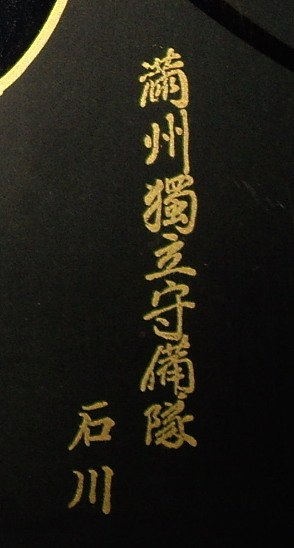 滿州獨立守備隊
石川